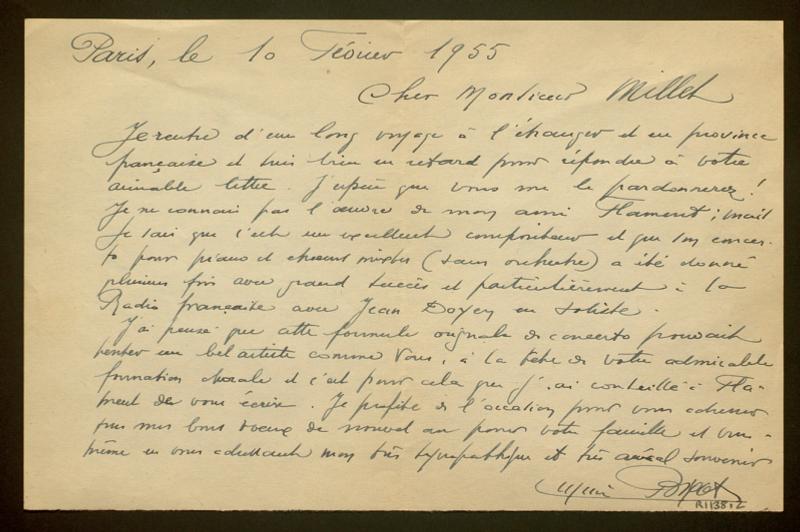 Paris, le 10 Février 1955
Cher Monsieur Millet
Je rentre d'un long voyage à l'étranger et en province
française et suis bien en retard pour répondre à votre
aimable lettre. J'espère que vous me le pardonnerez!
Je ne connais pas l'œuvre de mon ami Flament; mais
je sais que c'est un excellent compositeur et que son concer-
to pour piano et chœurs mixtes (sans orchestre) a été donné
plusieurs fois avec grand succès et particulièrement à la
Radio française avec Jean Doyen en soliste.
J'ai pensé que cette formule originale de concerto pouvait
tenter un bel artiste comme vous, à la tête de votre admirable
formation chorale et c'est pour cela que j'ai conseillé à Fla-
ment de vous écrire. Je profite de l'occasion pour vous adresser
tous mes bons vœux de nouvel an pour votre famille et vous-
même en vous adressant mon très sympathique et très amical souvenir
R1138.2